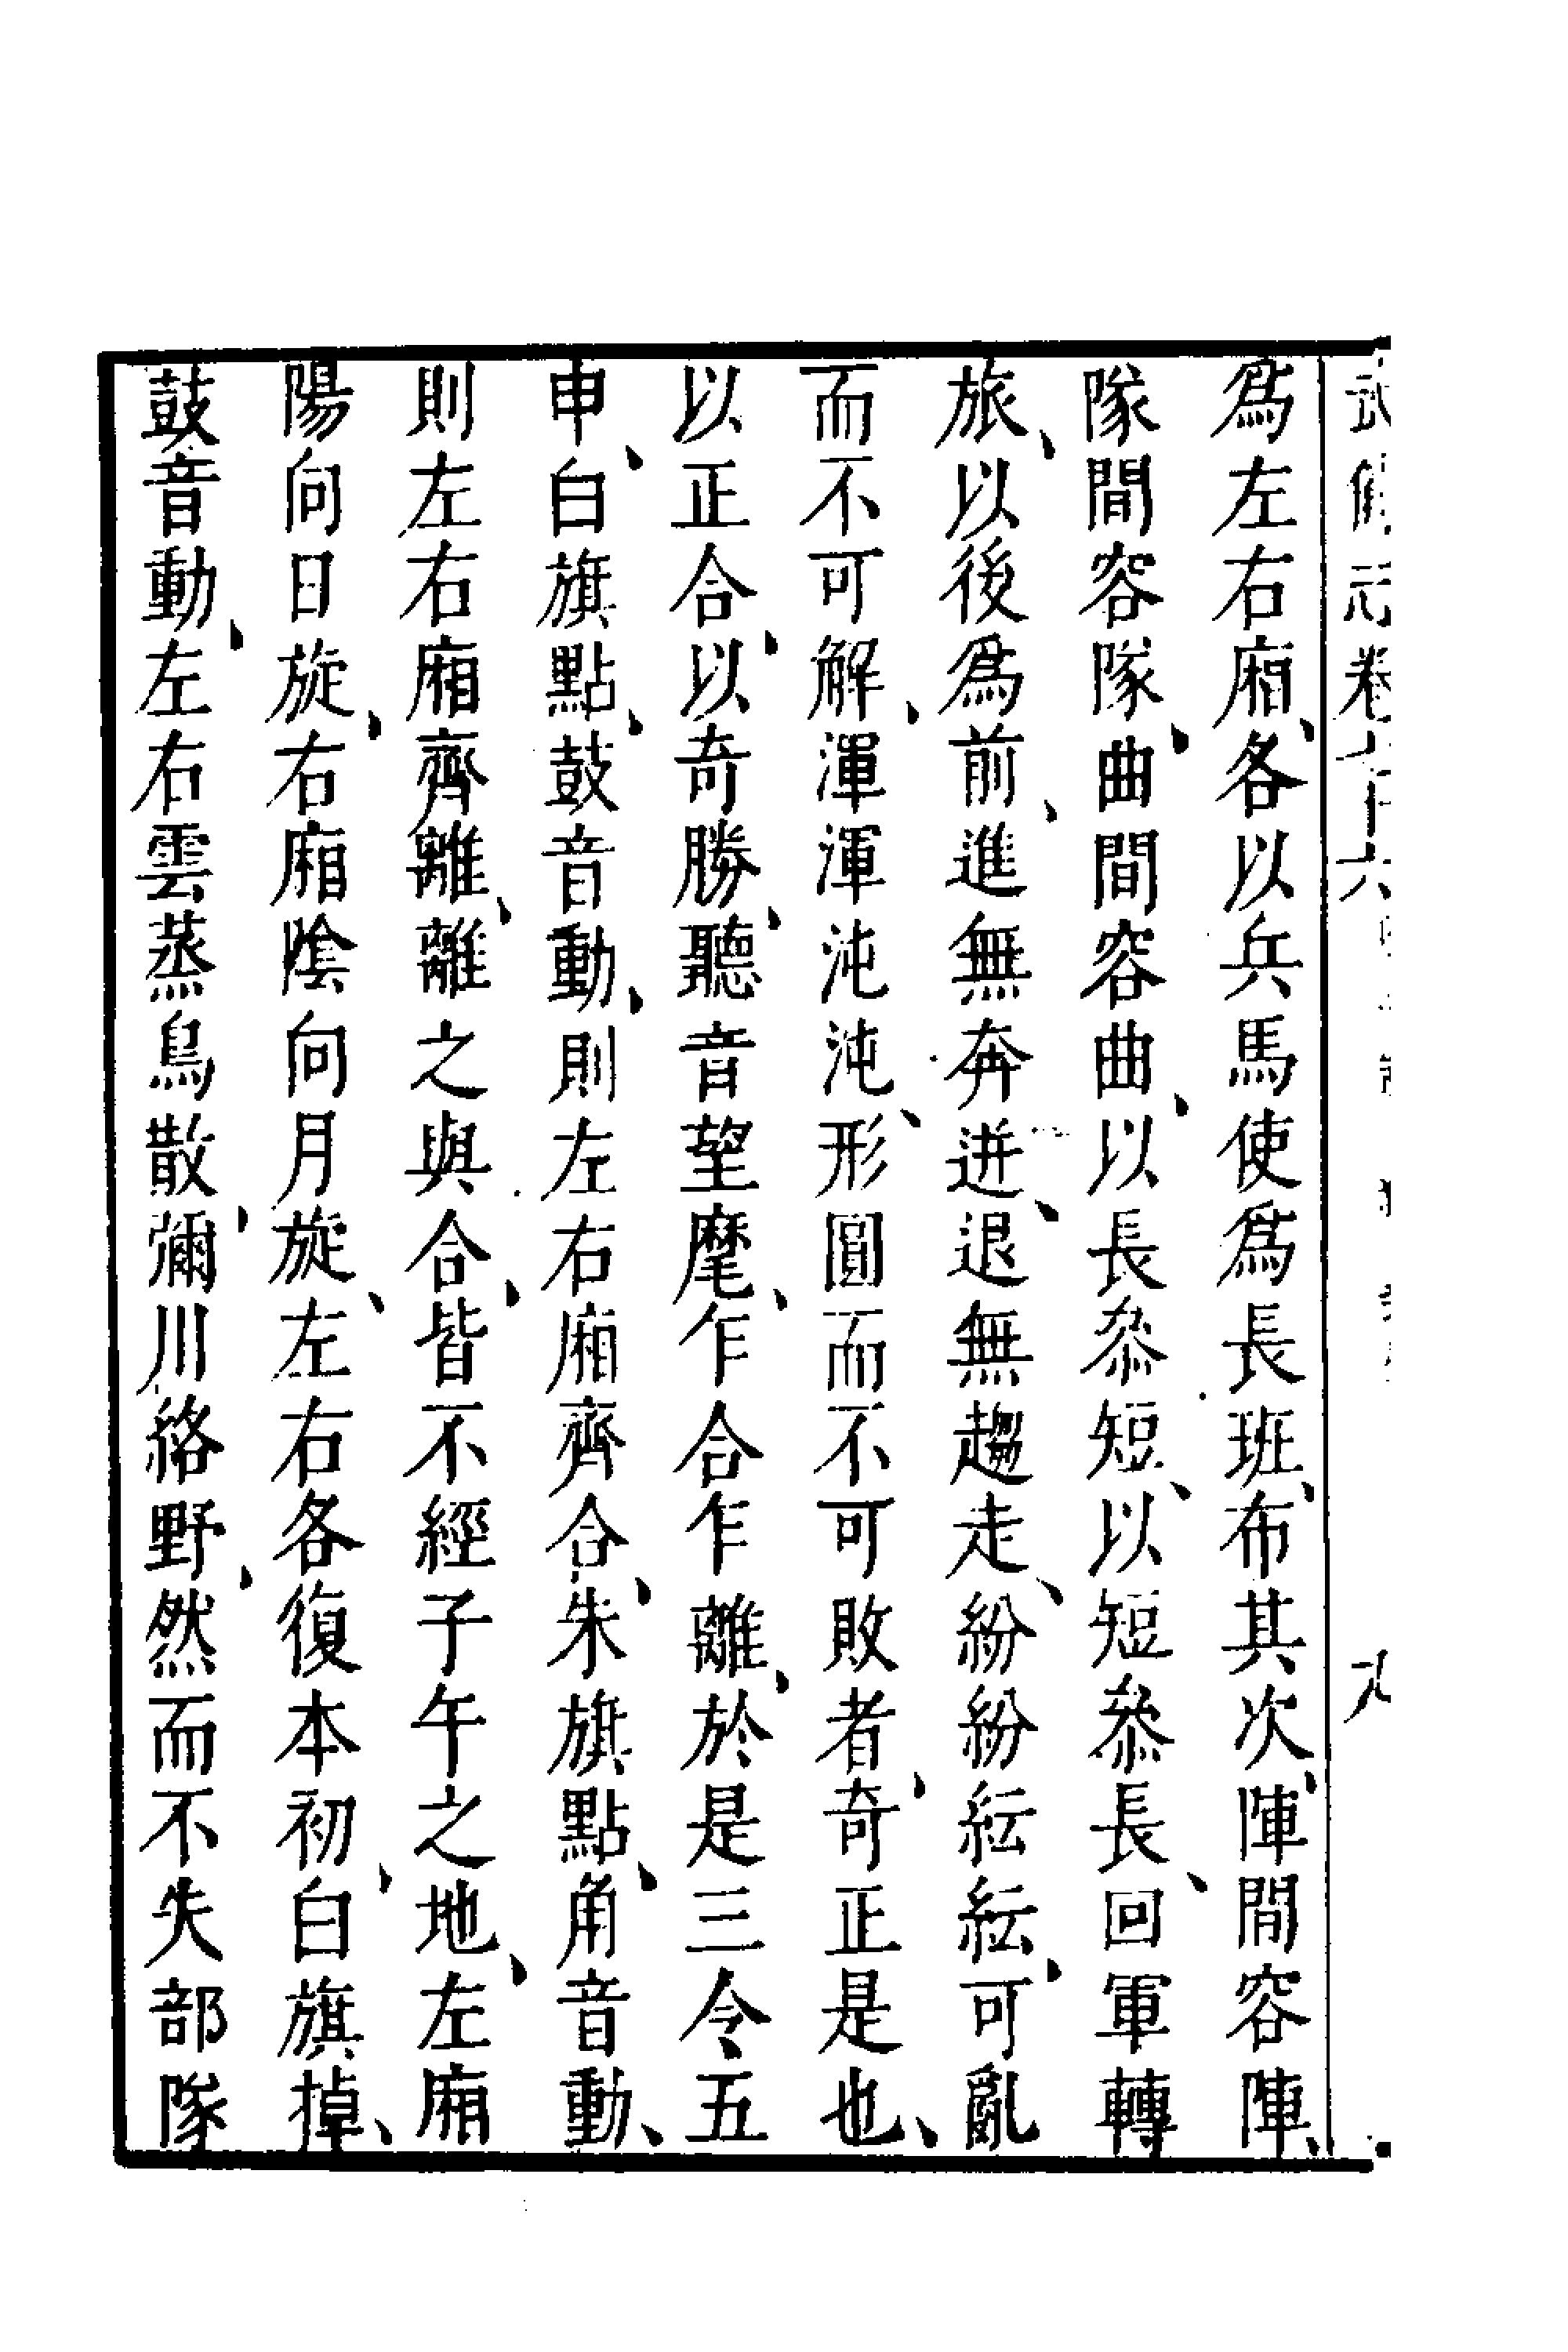 武備志卷七十六
九
爲左右廂、各以兵馬使爲長班、布其次、陣間容陣、
隊間容隊、曲間容曲、以長叅短、以短叅長、回軍轉
旅、以後爲前、進無奔迸、退無趨走、紛紛紜紜、可亂
而不可解、渾渾沌沌、形圓而不可敗者、奇正是也、
以正合、以奇勝、聽音望麾、乍合乍離、於是三令五
申、白旗點、鼓音動、則左右廂齊合、朱旗點、角音動、
則左右廂齊離、離之與合、皆不經子午之地、左廂
陽向日旋、右廂陰向月旋、左右各復本初、白旗掉、
鼓音動、左右雲蒸鳥散、彌川絡野、然而不失部隊